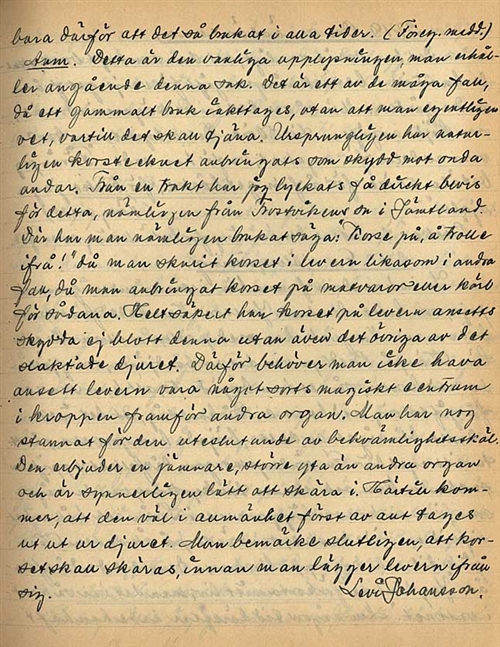 bara därför att det så brukat i alla tider. (Föreg. medd.)
Anm. Detta är den vanliga upplysningen, man erhål-
ler angående denna sak. Det är ett av de många fall,
då ett gammalt bruk iakttages, utan att man egentligen
vet, vartill det skall tjäna. Ursprungligen har natur-
ligen korstecknet anbringats som skydd mot onda
andar. Från en trakt har jag lyckats få direkt bevis
för detta, nämligen från Frostvikens sn i Jämtland.
Där har man nämligen brukat säga: "Korse på, å trolle
ifrå!" då man skurit korset i levern likasom i andra
fall, då man anbringat korset på matvaror eller kärl
för sådana. Helt säkert har korset på levern ansetts
skydda ej blott denna utan även det övriga av det
slaktade djuret. Därför behöver man icke hava
ansett levern vara något sorts magiskt centrum
i kroppen framför andra organ. Man har nog
stannat för den uteslutande av bekvämlighetsskäl.
Den erbjuder en jämnare, större yta än andra organ
och är synnerligen lätt att skära i. Härtill kom-
mer, att den väl i allmänhet först av allt tages
ut ut ur djuret. Man bemärke slutligen, att kor-
set skall skäras, innan man lägger levern ifrån
sig. Levi Johansson.